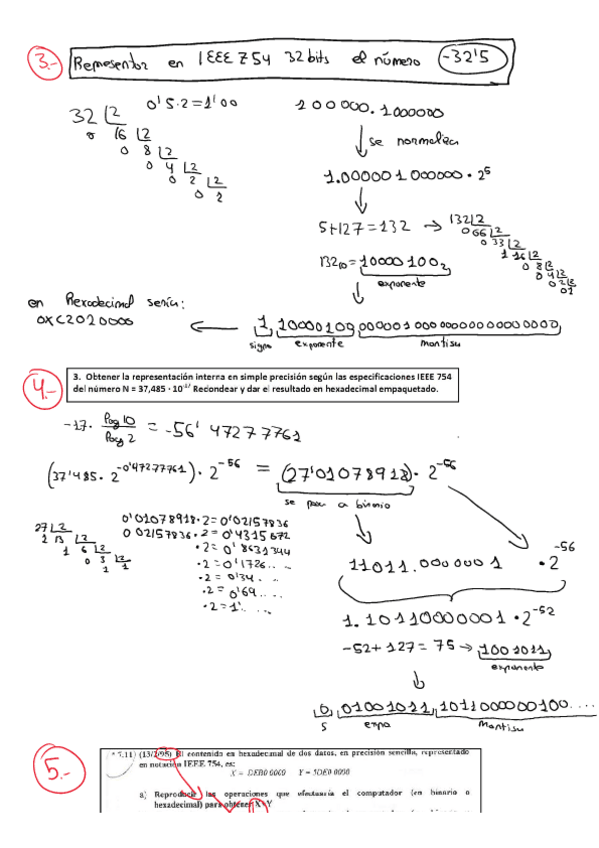 3.- Representar en IEEE 754 32 bits el número -32'5
32 |2 0'5·2=1'00 100000.1000000
0 16 |2
0 8 |2
0 4 |2
0 2 |2
0 1
se normaliza
1.000001000000·2^5
5+127=132 → 132|2
0 66|2
0 33|2
1 16|2
0 8|2
0 4|2
0 2|2
0 1
132₁₀=10000100₂
exponente
en Hexadecimal sería:
0XC2020000 ← 1 10000100 00000100000000000000000
signo exponente mantisa
4.- 3. Obtener la representación interna en simple precisión según las especificaciones IEEE 754
del número N = 37,485 · 10^-17 Redondear y dar el resultado en hexadecimal empaquetado.
-17· log 10 / log 2 = -56'47277761
(37'485·2^-0'47277761)·2^-56 = (27'01078918)·2^-56
se pasa a binario
27|2
1 13|2
1 6|2
0 3|2
1 1
0'01078918·2=0'02157836
0'02157836·2=0'04315672
·2=0'8631344
·2=0'1726....
·2=0'34...
·2=0'69....
·2=1'....
11011.0000001 ·2^-56
1.10110000001·2^-52
-52+127=75 → 1001011
exponente
0 01001011 101100000100....
S expo Mantisa
5.- 5.11) (13/2/95) El contenido en hexadecimal de dos datos, en precisión sencilla, representado
en notación IEEE 754, es:
X = DEB0 0000 Y = 5DE0 0000
a) Reproducir las operaciones que efectuaría el computador (en binario o
hexadecimal) para obtener X+Y